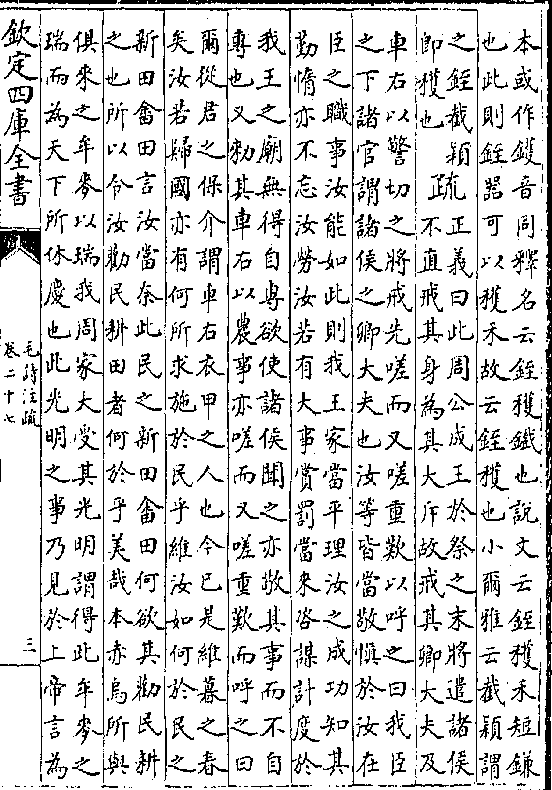 本或作鑊音同釋名云銍穫鐵也說文云銍穫禾短鎌
也此則銍器可以穫禾故云銍穫也小爾雅云截穎謂
之銍截穎
即穫也
疏
正義曰此周公成王於祭之末將遣諸侯
不直戒其身為其大斥故戒其卿大夫及
車右以警切之將戒先嗟而又嗟重歎以呼之曰我臣
之下諸官謂諸侯之卿大夫也汝等皆當敬慎於汝在
臣之職事汝能如此則我王家當平理汝之成功知其
勤惰亦不忘汝勞汝若有大事賞罰當來咨謀計度於
我王之廟無得自專欲使諸侯聞之亦敬其事而不自
專也又勑其車右以農事亦嗟而又嗟重歎而呼之曰
爾從君之保介謂車右衣甲之人也今已是維暮之春
矣汝若歸國亦有何所求施於民乎維汝如何於民之
新田畬田言汝當奈此民之新田畬田何欲其勸民耕
之也所以令汝勸民耕田者何於乎美哉本赤烏所與
俱來之牟麥以瑞我周家大受其光明謂得此牟麥之
瑞而為天下所休慶也此光明之事乃見於上帝言為
欽定四庫全書
毛詩注疏
卷二十七
三